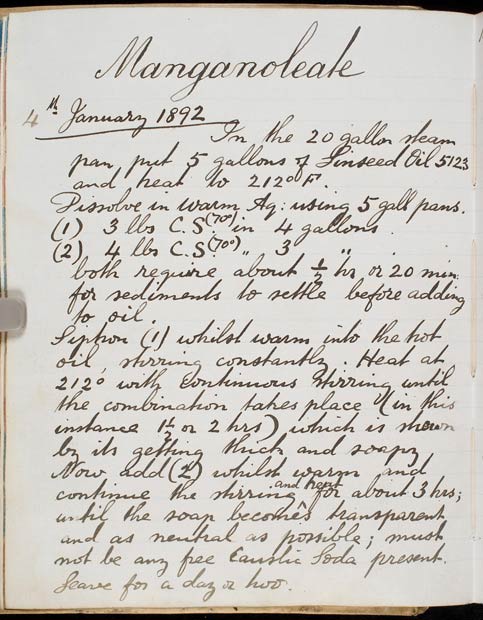 Manganoleate
4th January 1892
In the 20 gallon steam
pan, put 5 gallons of Linseed Oil 5123
and heat to 212° F.
Dissolve in warm Aq: using 5 gall pans.
(1) 3 lbs C.S.(70°) in 4 gallons
(2) 4 lbs C.S.(70°) " 3 " .
both require about ½ hr or 20 min
for sediments to settle before adding
to oil.
Siphon (1) whilst warm into the hot
oil, stirring constantly. Heat at
212° with continuous stirring until
the combination takes place (in this
instance 1½ or 2 hrs) which is shown
by its getting thick and soapy
Now add (2) whilst warm and
continue the stirring and heat for about 3 hrs;
until the soap becomes transparent
and as neutral as possible; must
not be any free Caustic Soda present.
Leave for a day or two.